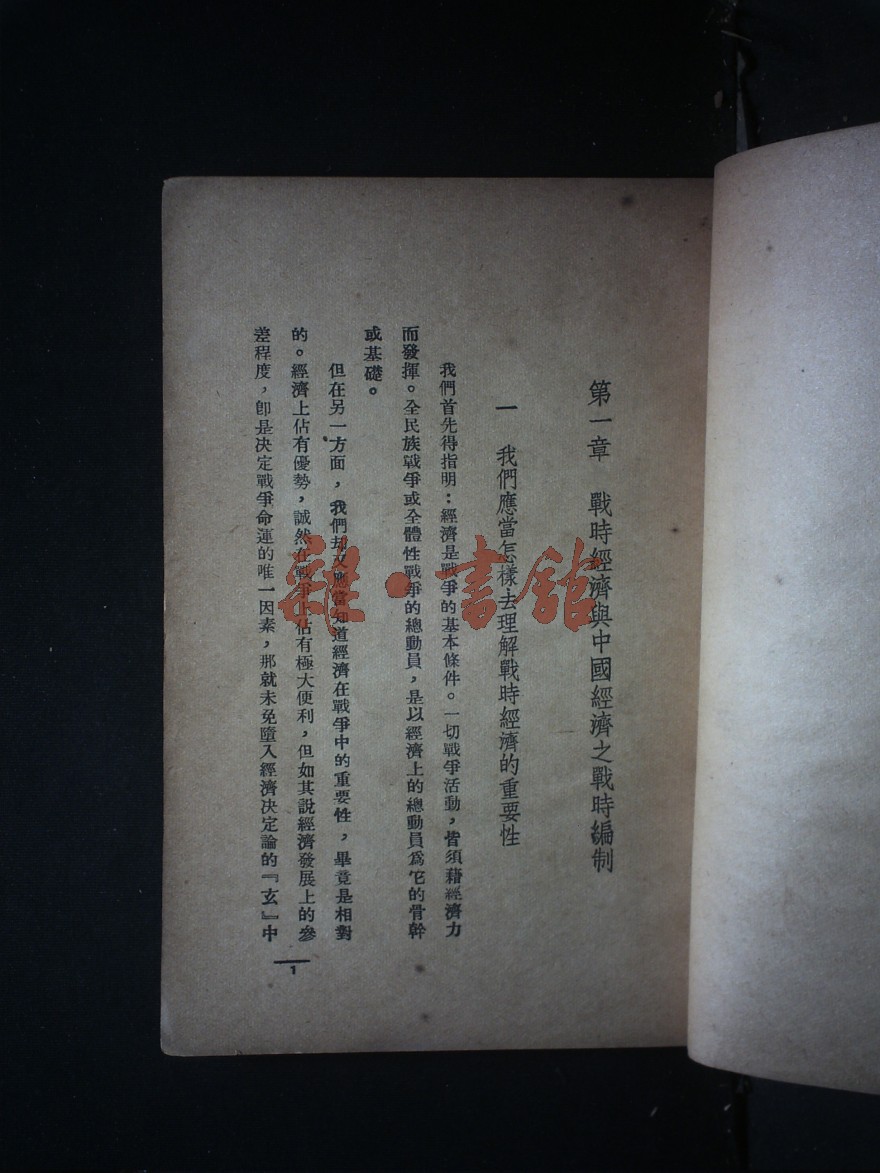 第一章　戰時經濟與中國經濟之戰時編制
一　我們應當怎樣去理解戰時經濟的重要性
我們首先得指明：經濟是戰爭的基本條件。一切戰爭活動，皆須藉經濟力
而發揮。全民族戰爭或全體性戰爭的總動員，是以經濟上的總動員爲它的骨幹
或基礎。
但在另一方面，我們却又應當知道經濟在戰爭中的重要性，畢竟是相對
的。經濟上佔有優勢，誠然在戰爭上佔有極大便利，但如其說經濟發展上的參
差程度，卽是決定戰爭命運的唯一因素，那就未免墮入經濟決定論的『玄』中
1
雜·書館